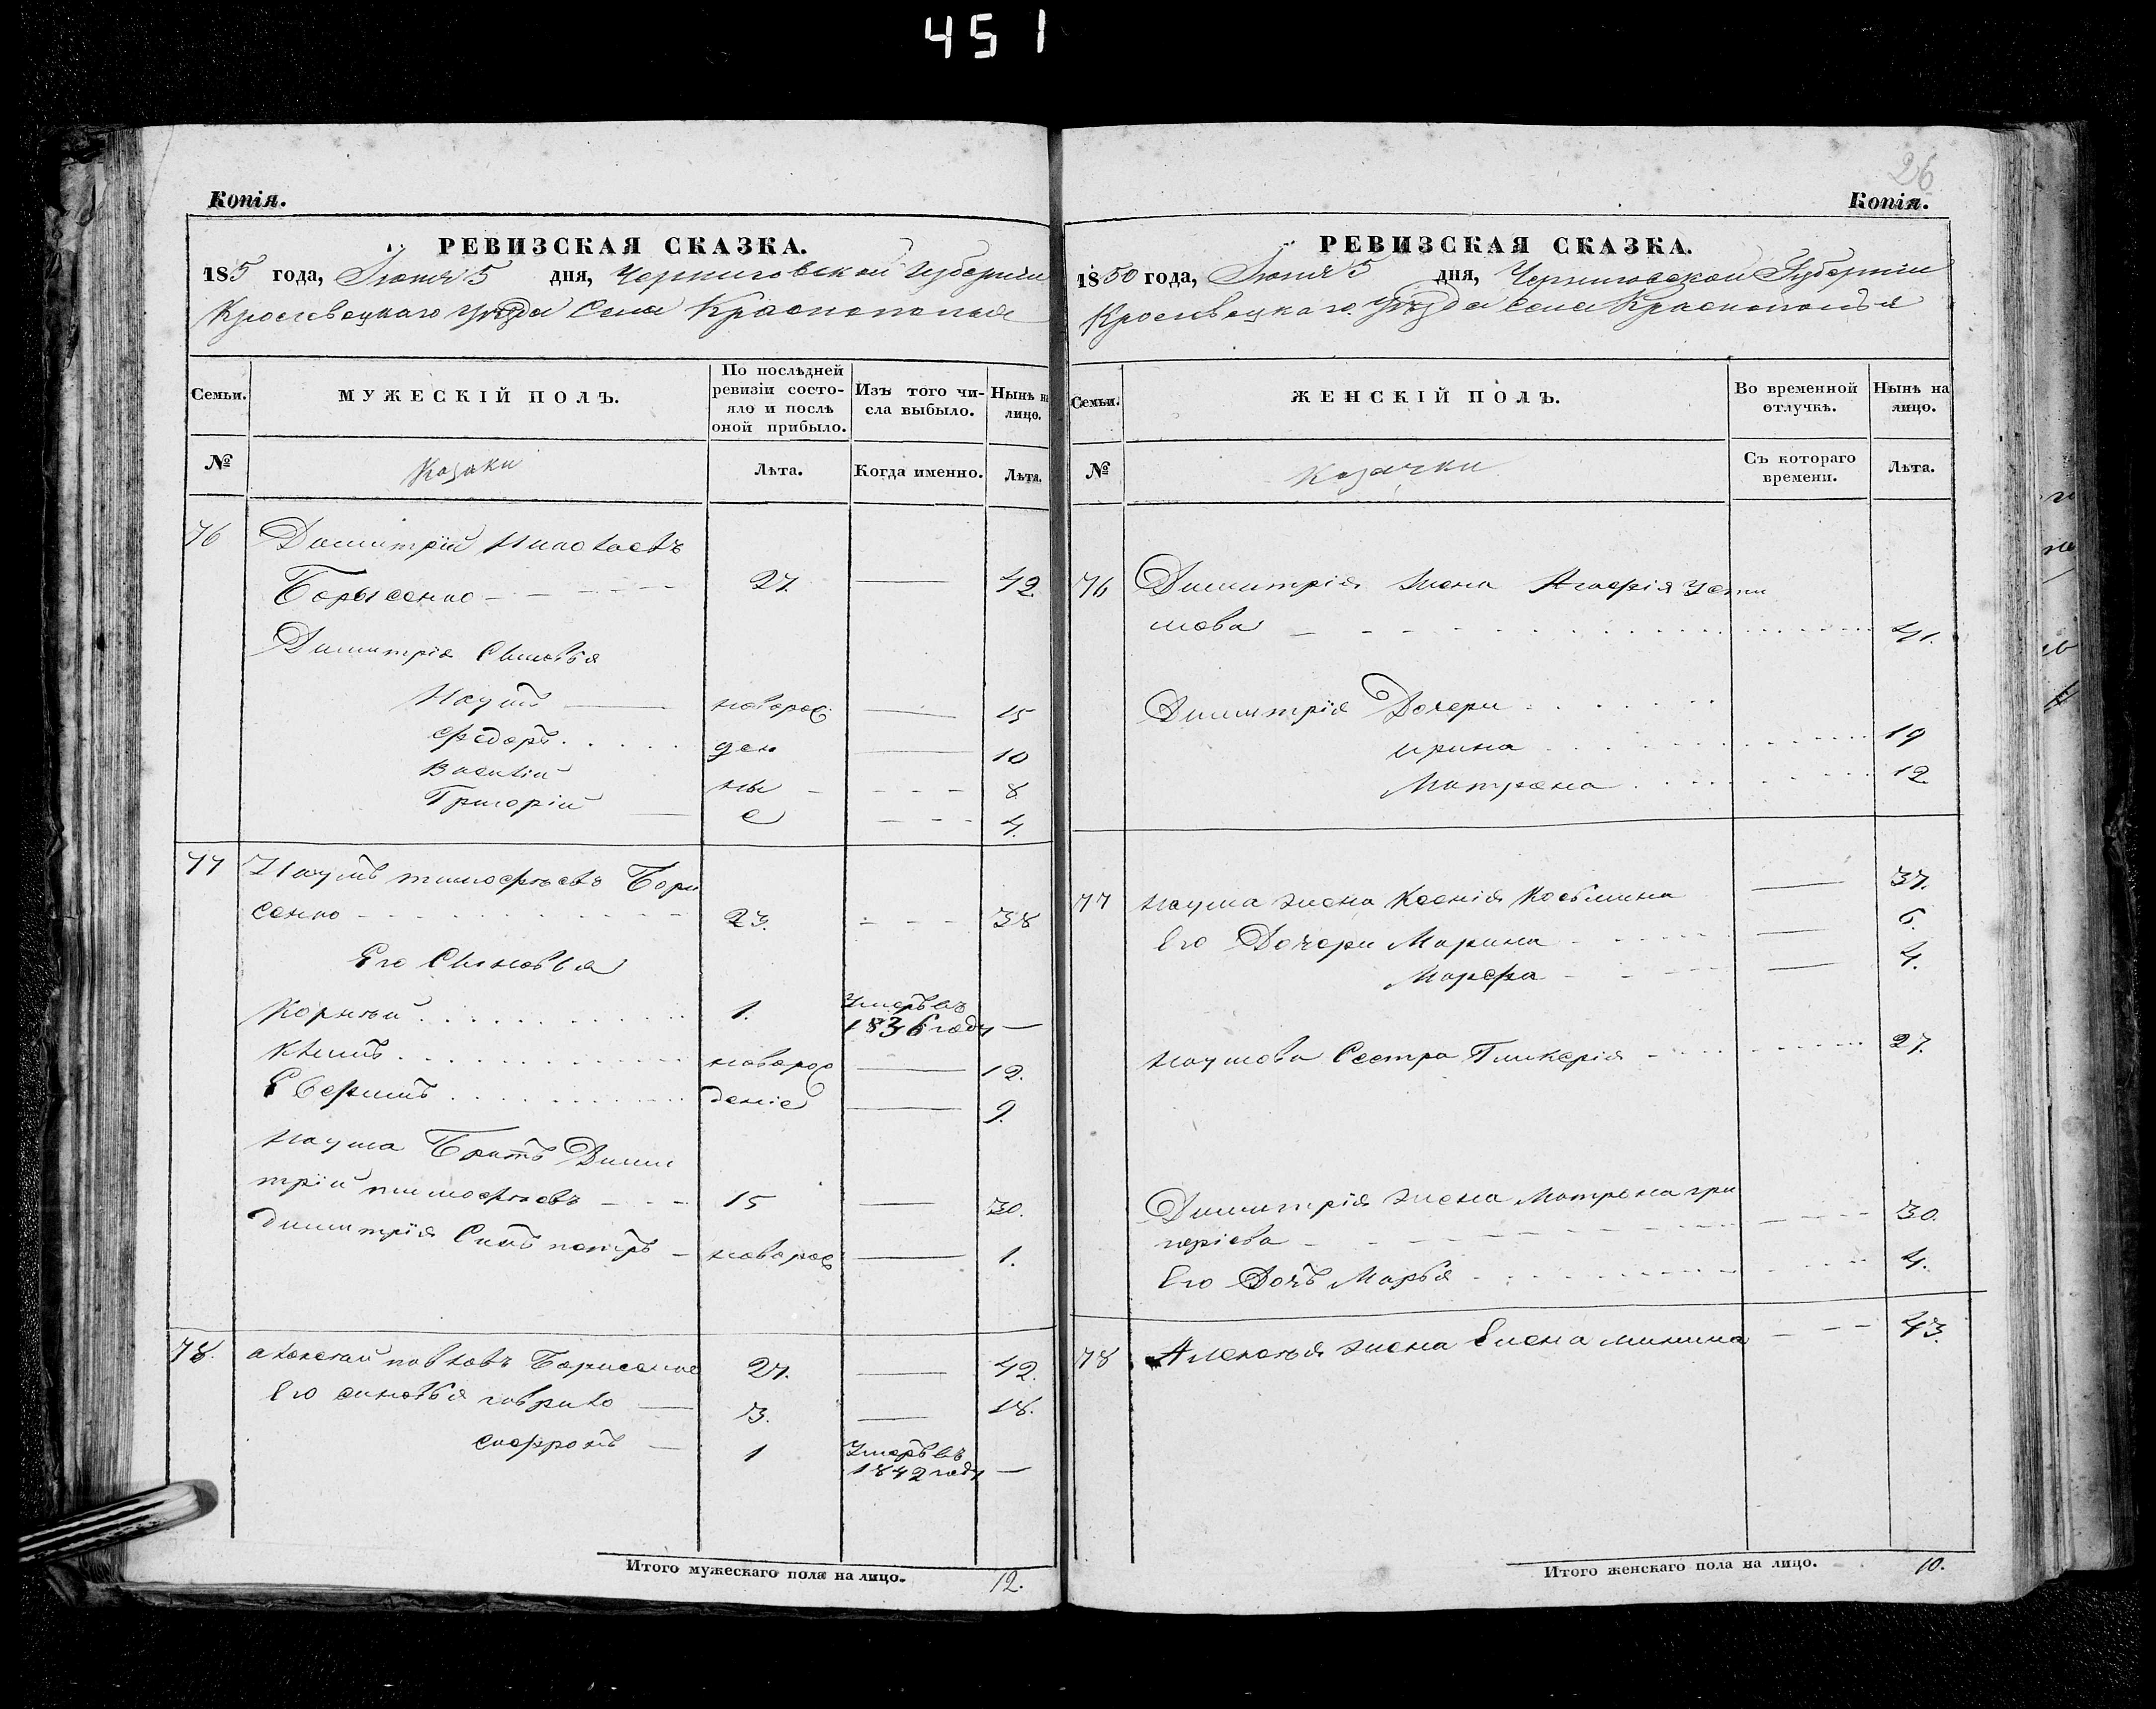 451
Копія.
РЕВИЗСКАЯ СКАЗКА.
185 года, Іюня 5 дня, Черниговской Губерніи
Кролевецкаго уѣзда Села Краснополья
Семьи.
МУЖЕСКІЙ ПОЛЪ.
По послѣдней
ревизіи состо-
яло и послѣ
оной прибыло.
Изъ того чи-
сла выбыло.
Нынѣ на
лицо.
№
Козаки
Лѣта.
Когда именно.
Лѣта.
76 Димитрій Николаевъ
Борысенко 27. 42
Димитрія Сыновья
Наумъ новорож 15
Федоръ ден 10
Василій ны 8
Григорій е 4.
77 Наумъ тимофѣевъ Бори
сенко 23. 38
Его Сыновья
Корнѣй 1. Умеръ въ
1836 году
Климъ новорож 12.
Евфимъ деніе 9.
Наума Братъ Дими
трій тимофѣевъ 15 30.
димитрія Сынъ петръ новорож 1.
78. алексѣй павловъ Борисенко 27. 42.
Его синовья гаврило 3. 18.
софронъ 1 Умеръ въ
1842 году
Итого мужескаго пола на лицо. 12.
26
Копія.
РЕВИЗСКАЯ СКАЗКА.
1850 года, Іюня 5 дня, Черниговской Губерніи
Кролевецкаго Уѣзда села Краснополья
Семьи.
ЖЕНСКІЙ ПОЛЪ.
Во временной
отлучкѣ.
Нынѣ на
лицо.
№
Козачки
Съ котораго
времени.
Лѣта.
76 Димитрія жена Агафія Усти
мова 41.
Димитрія Дочери
ирина 19
Матрона 12
77 наума жена Ксенія Косьмина 37.
Его Дочери Марина 6.
Марфа 4.
наумова Сестра Гликерія 27.
Димитрія жена Матрона гри
горіева 30.
Его Дочь Марья 4.
78 Алексѣя жена Елена минина 43.
Итого женскаго пола на лицо. 10.